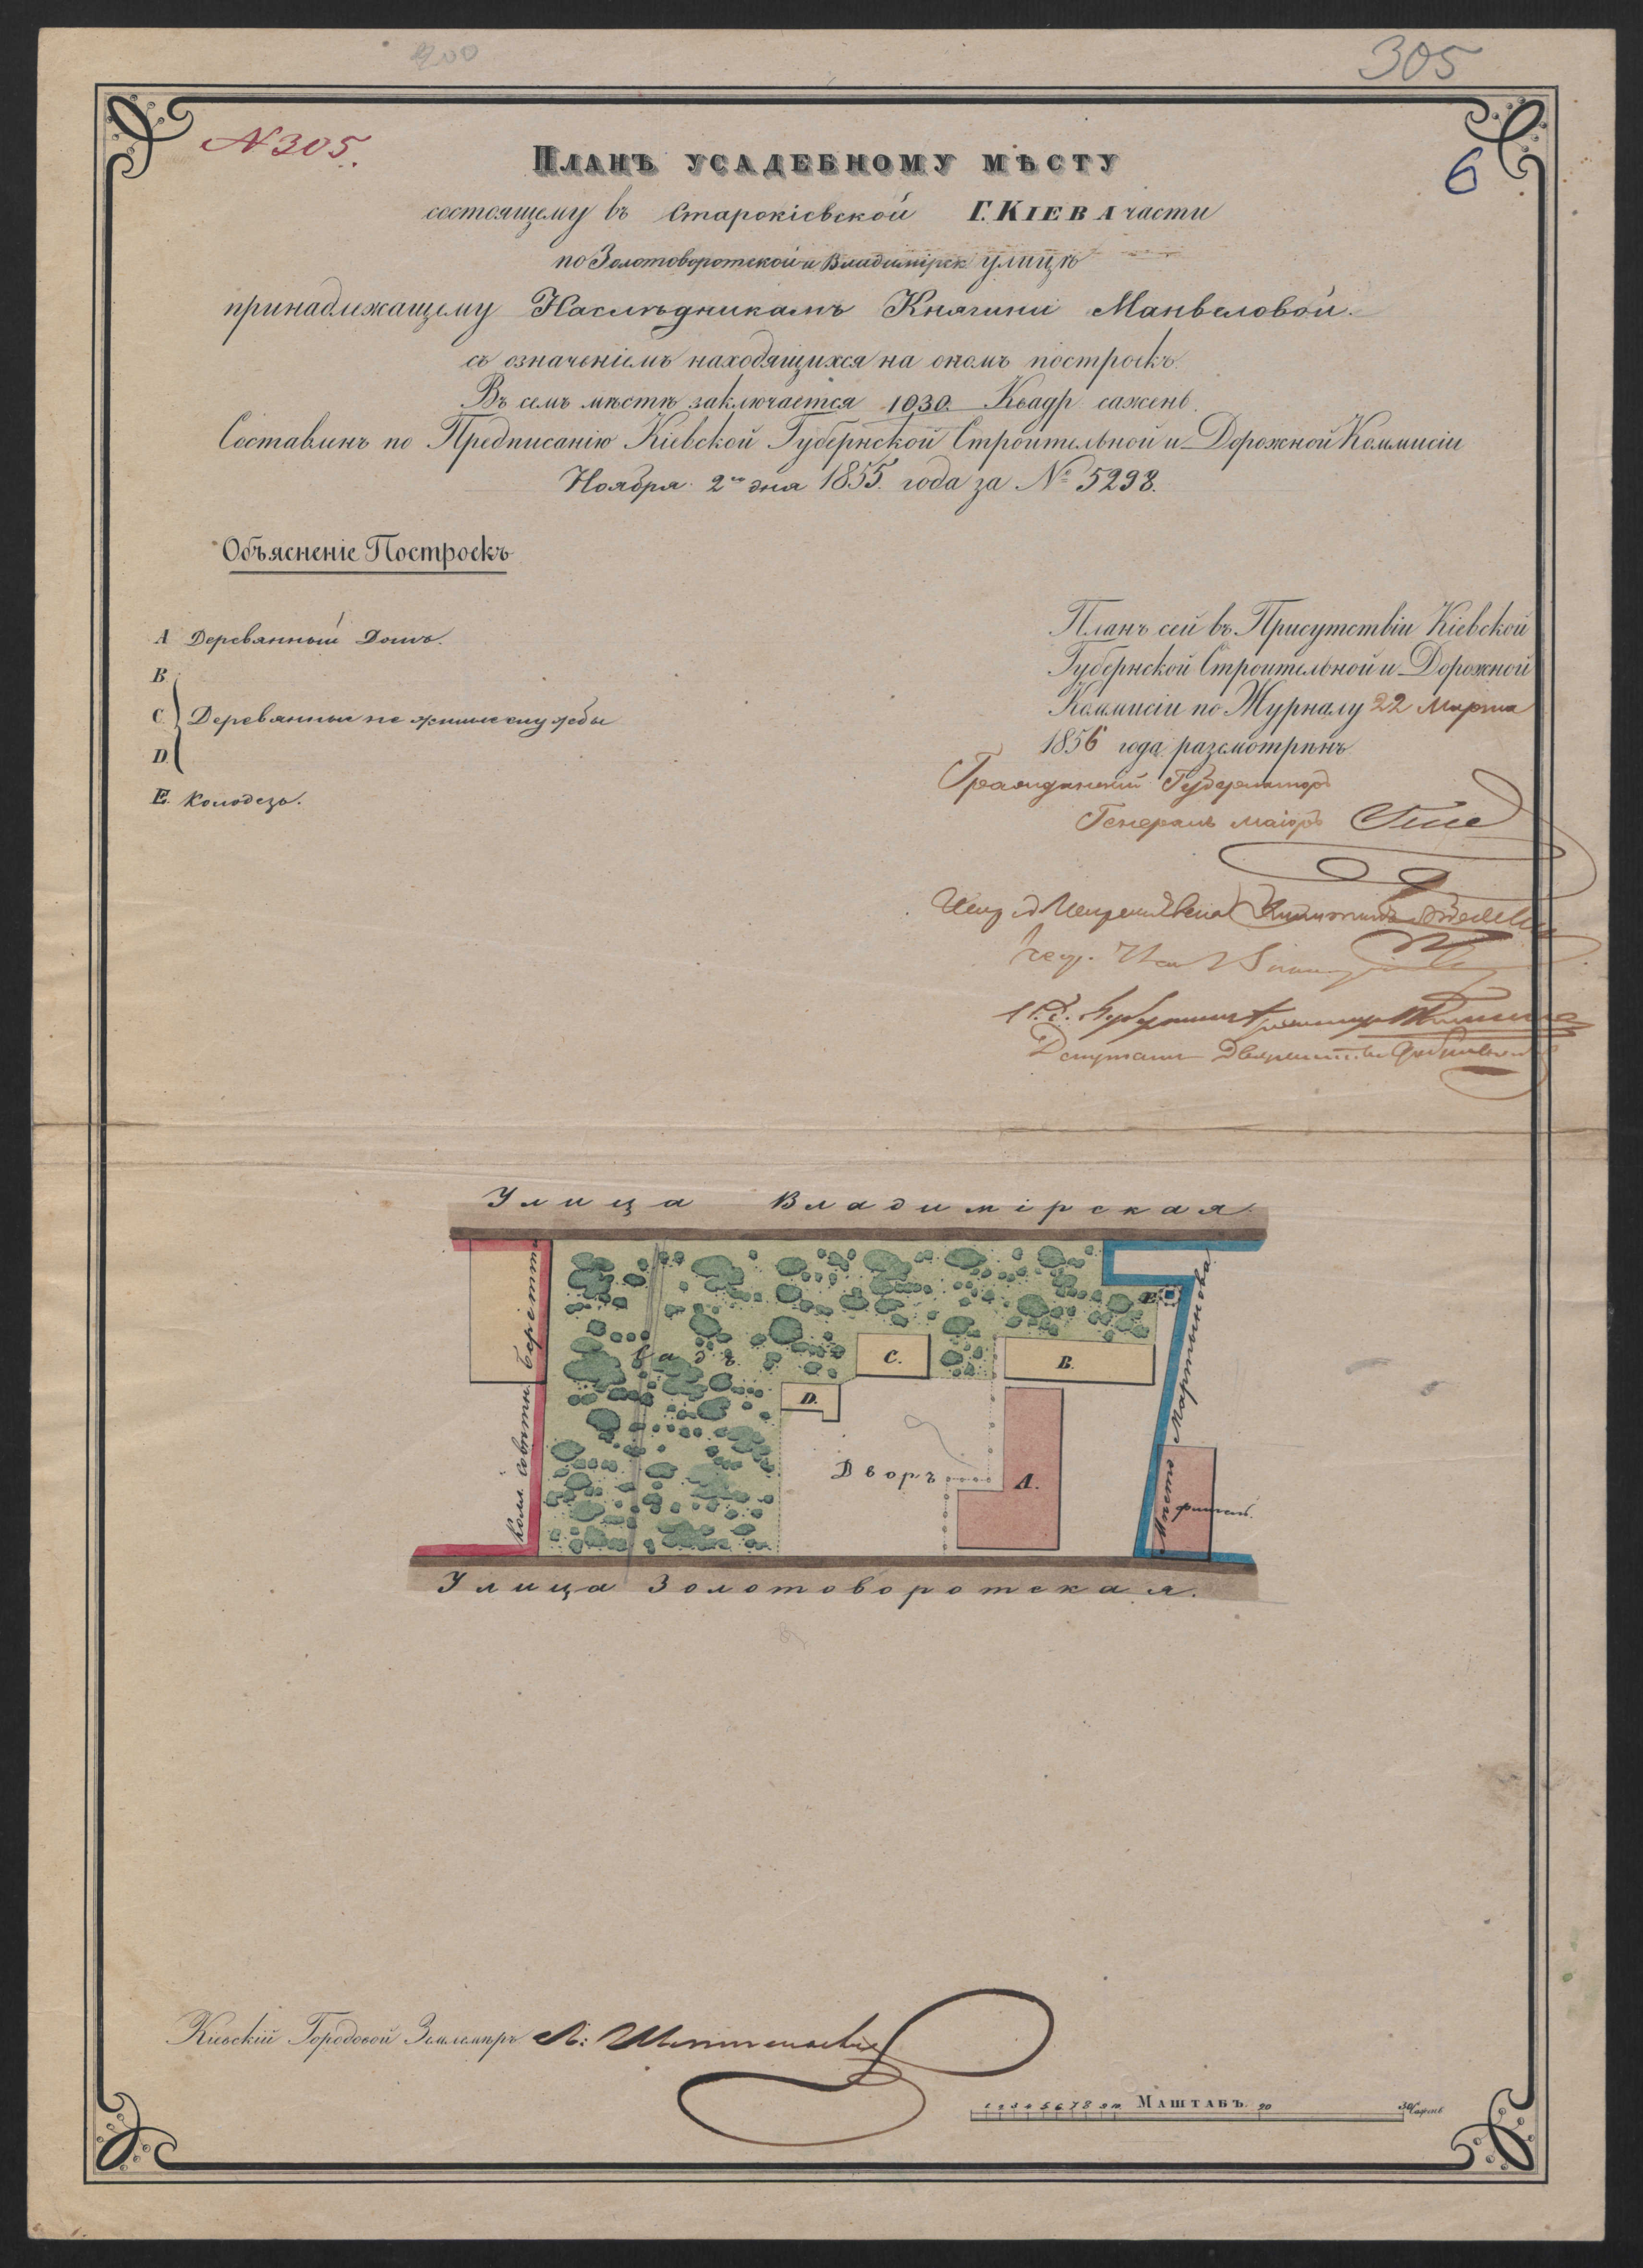 305
N 305.
6
Планъ усадебному мѣсту
состоящему въ Старокіевской Г. Кіева части
по Золотоворотской и Владимірск улицѣ
принадлежащему Наслѣдникамъ Княгини Манвеловой.
съ означеніемъ находящихся на ономъ построекъ.
Въ семъ мѣстѣ заключается 1030. Квадр. сажень.
Составленъ по Предписанію Кіевской Губернской Строительной и Дорожной Коммисіи
Ноября 2го дня 1855. года за № 5298.
Объясненіе Построекъ
A Деревянный Домъ.
B.
C. Деревянные не жилые службы
D.
E. Колодезь.
Планъ сей въ Присутствіи Кіевской
Губернской Строительной и Дорожной
Коммисіи по Журналу 22 Марта
1856 года разсмотрѣнъ
Гражданскій Губернаторъ
Генералъ маіоръ
Улица Владимірская.
E.
Садъ
C.
B.
D.
Дворъ
A.
Мѣсто Мартынова
флигель.
Улица Золотоворотская.
Кіевскій Городовой Землемѣръ
1 2 3 4 5 6 7 8 9 10 Маштабъ. 20 30 Сажень